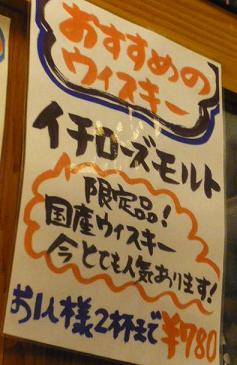 おすすめの
ウィスキー
イチローズモルト
限定品!
国産ウィスキー
今とても人気あります!
お1人様2杯まで ¥780